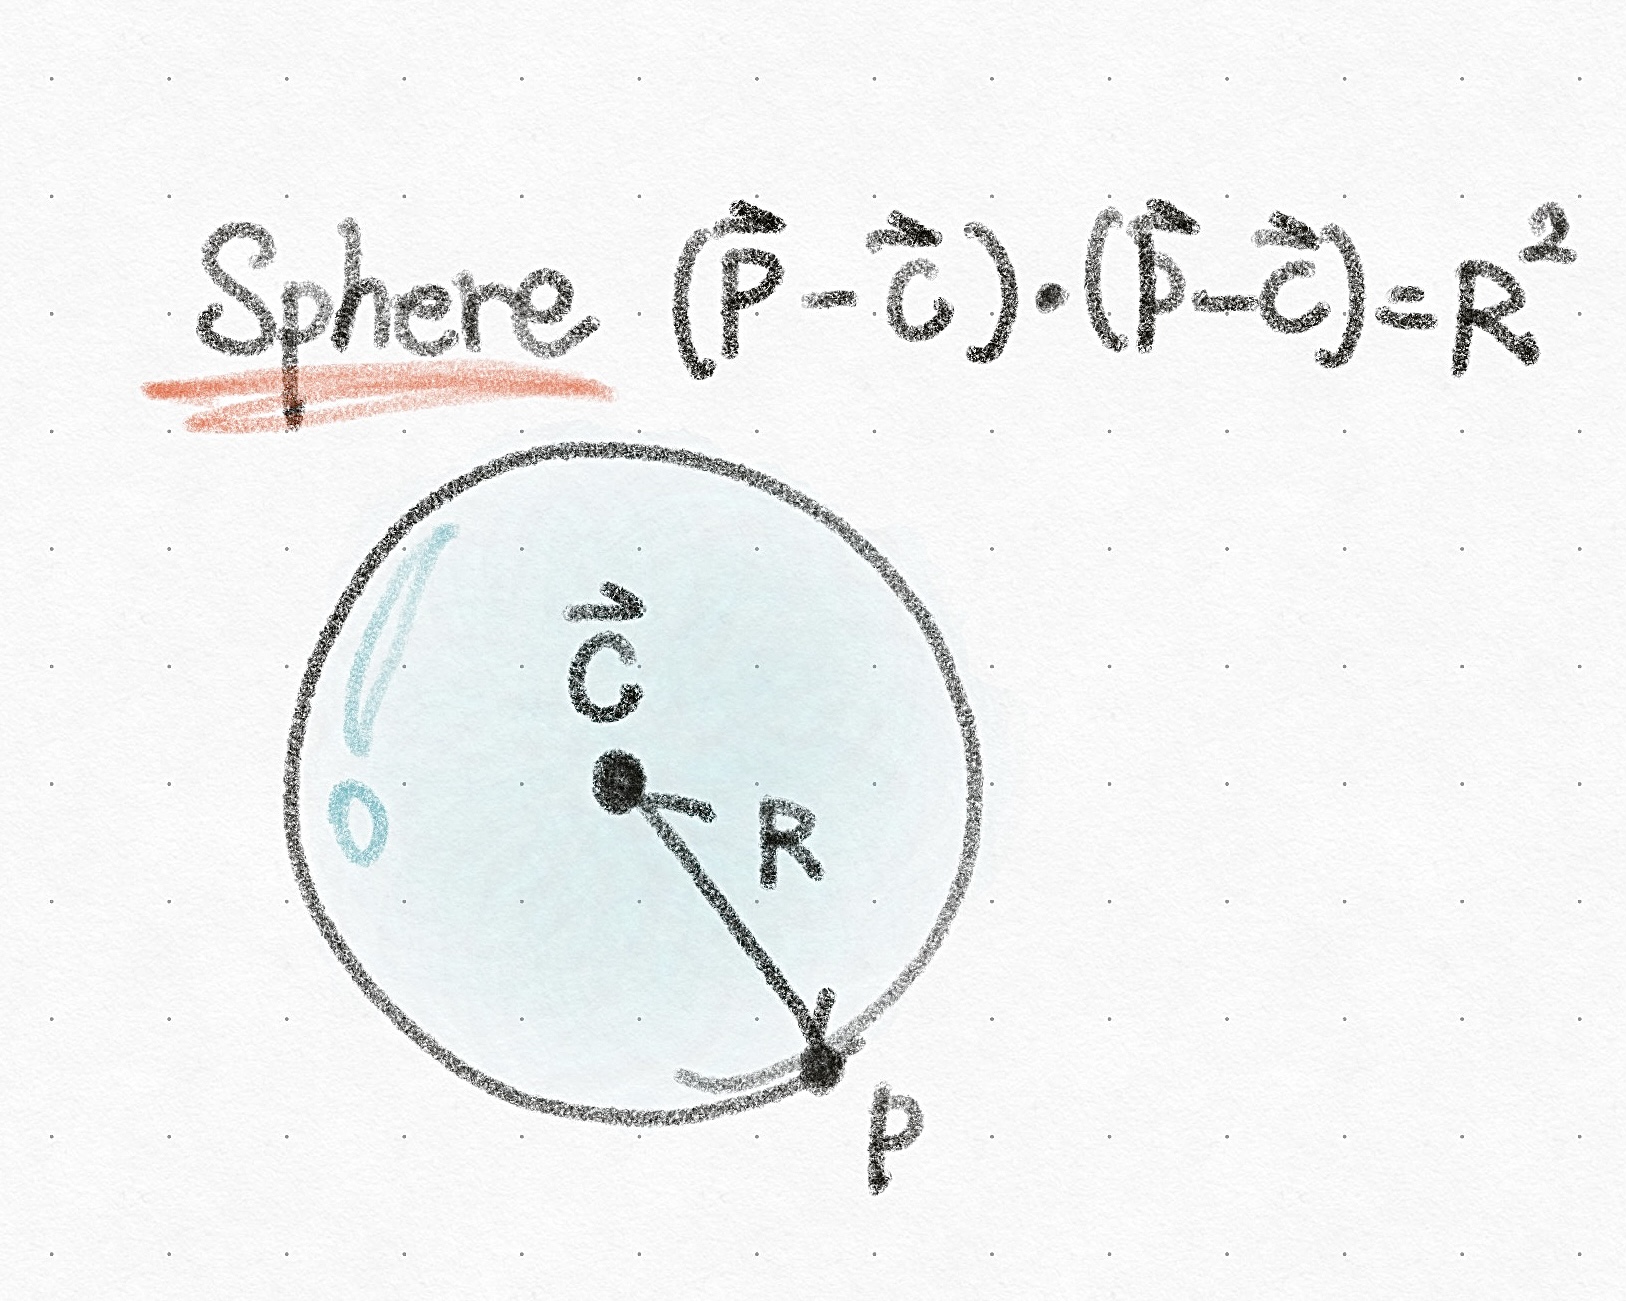 Sphere (P⃗ - C⃗)·(P⃗ - C⃗) = R²
C⃗
R
P